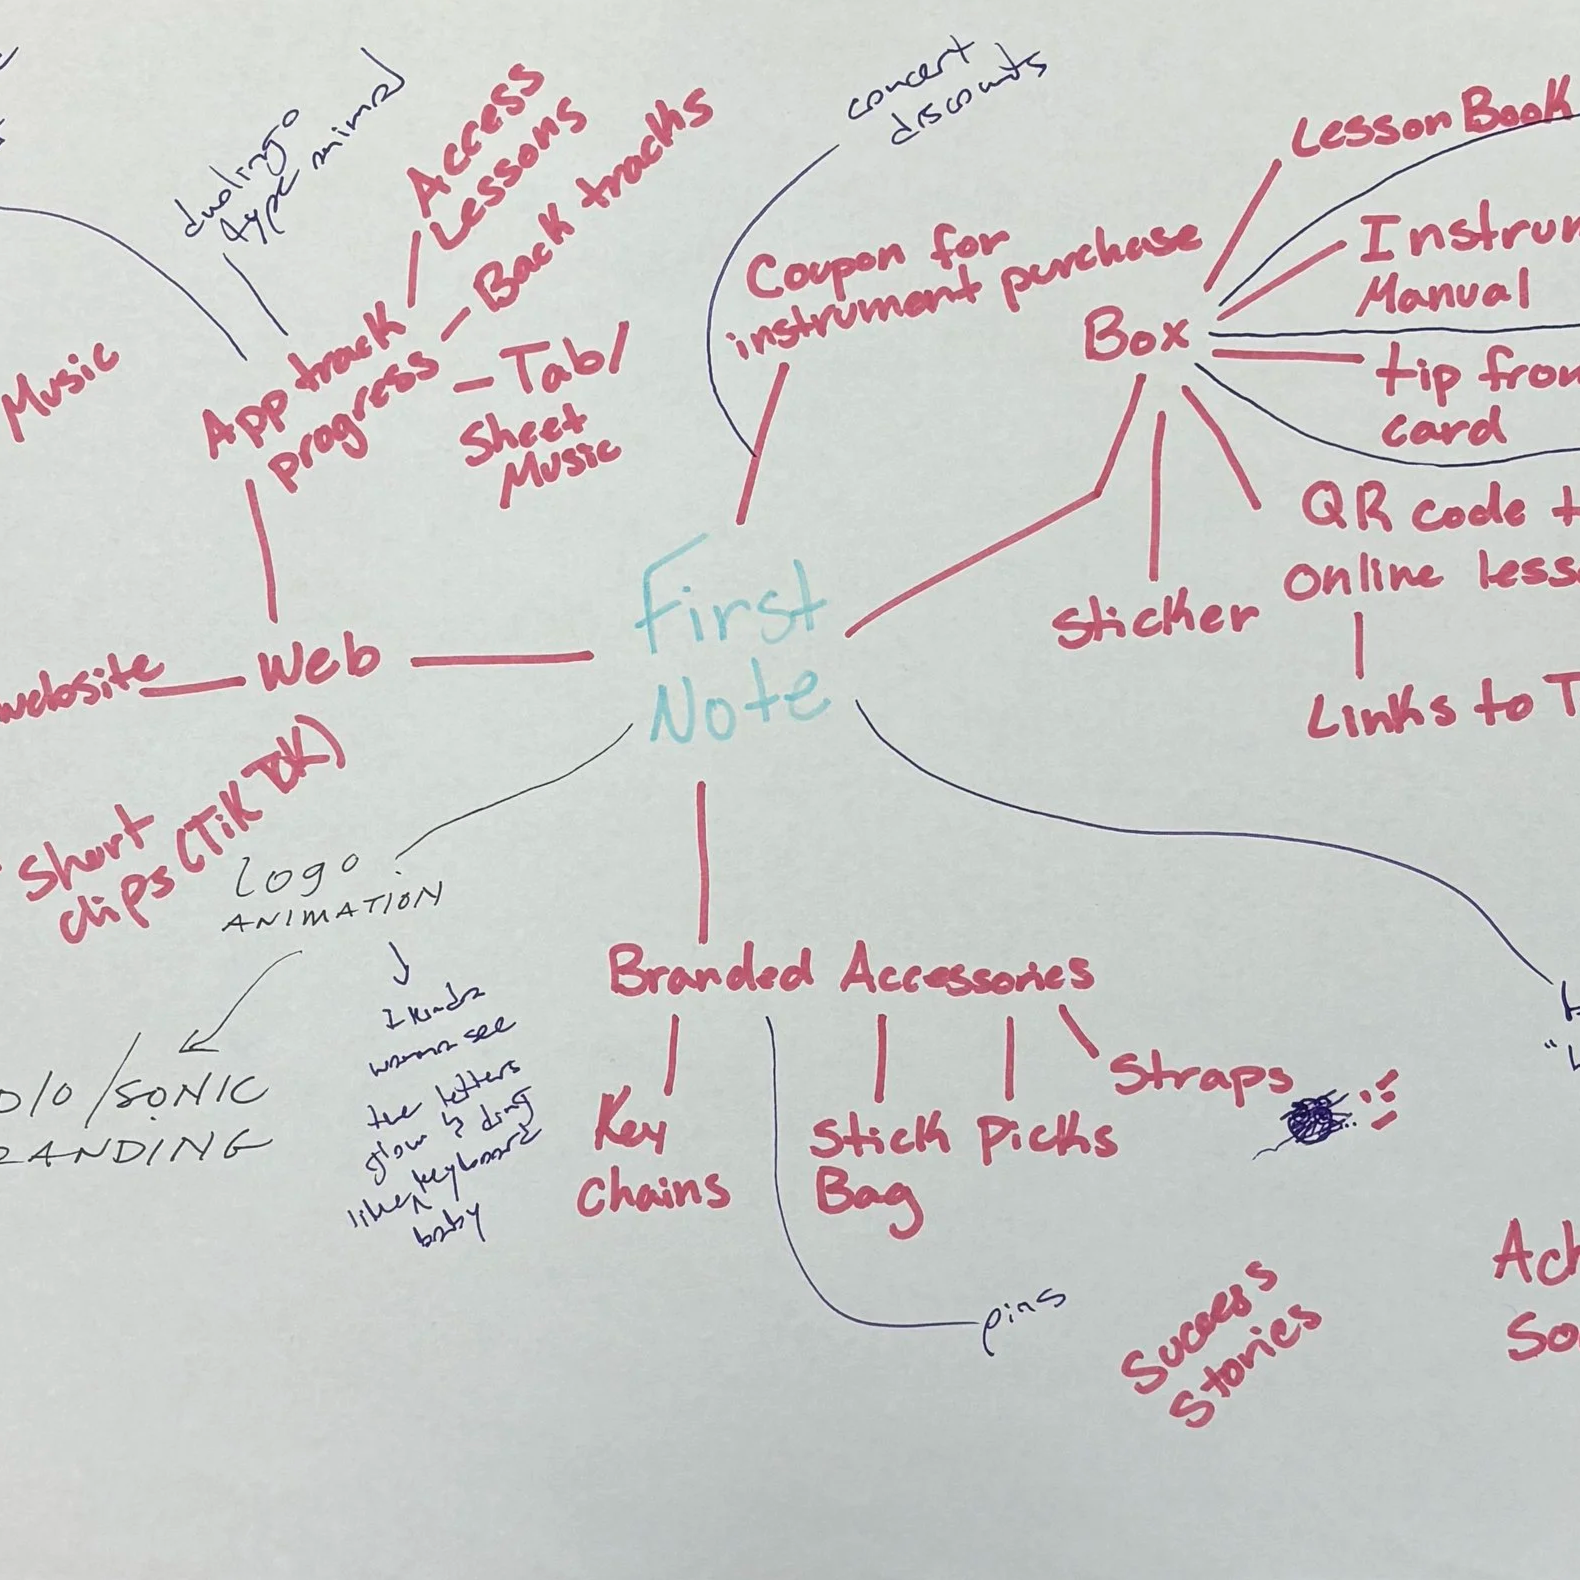 duolingo
type animal
Access
Lessons
Back tracks
App track
progress
Tab/
Sheet
Music
Music
concert
discounts
Coupon for
instrument purchase
Box
Lesson Book
Instrum
Manual
tip from
card
QR code t
online less
Links to T
Sticker
First
Note
Web
website
Short
clips (TikTok)
Logo
ANIMATION
I kinda
wanna see
the letters
glow & ding
like keyboard
baby
DIO/SONIC
RANDING
Branded Accessories
Key
Chains
Stick
Bag
Picks
Straps
pins
Success
Stories
Ach
So